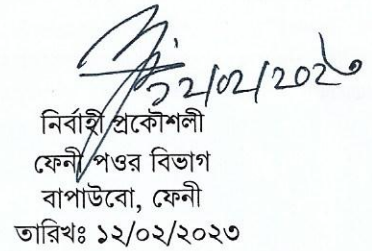 ১২/০২/২০২৩
নির্বাহী প্রকৌশলী
ফেনী পওর বিভাগ
বাপাউবো, ফেনী
তারিখঃ ১২/০২/২০২৩